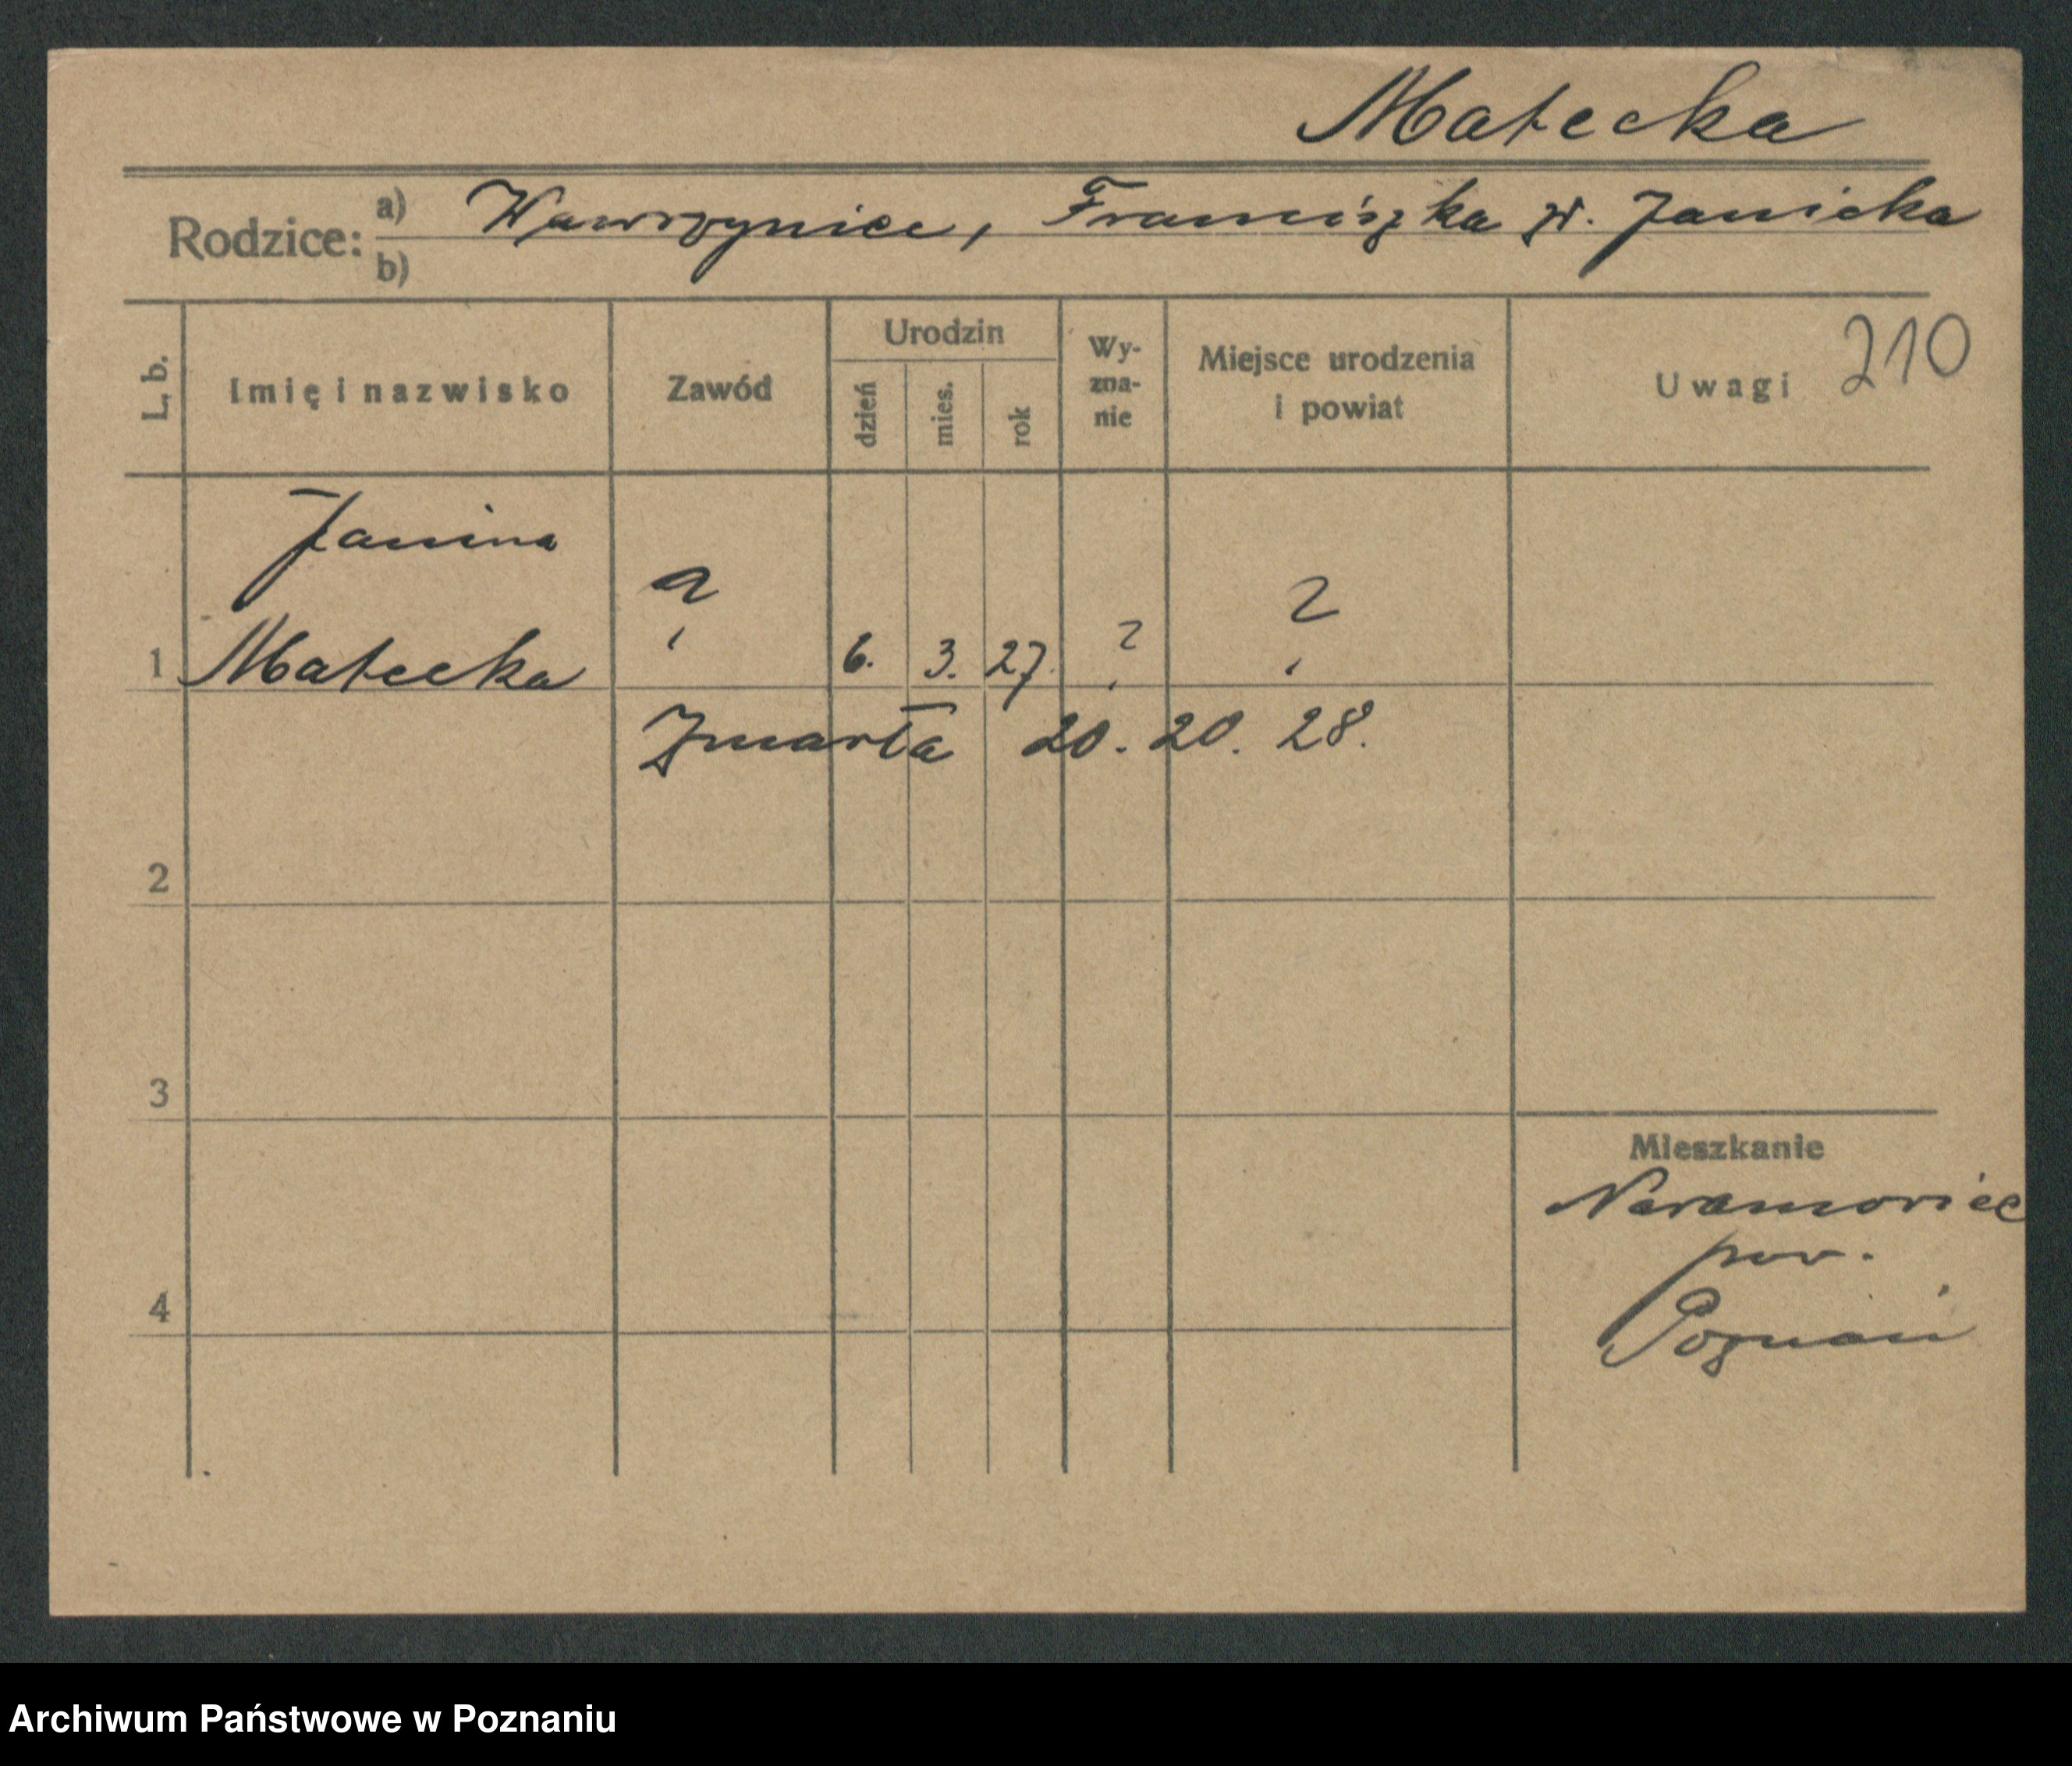 Małecka
Rodzice: a) Wawrzyniec, Franciszka zd. Janicka
b)
L. b. Imię i nazwisko Zawód Urodzin dzień mies. rok Wyznanie Miejsce urodzenia i powiat Uwagi 210
Janina
1 Małecka ? 6. 3. 27. ? ?
Zmarła 20. 20. 28.
2
3
Mieszkanie
Naramowice
pow.
4
Poznań
Archiwum Państwowe w Poznaniu